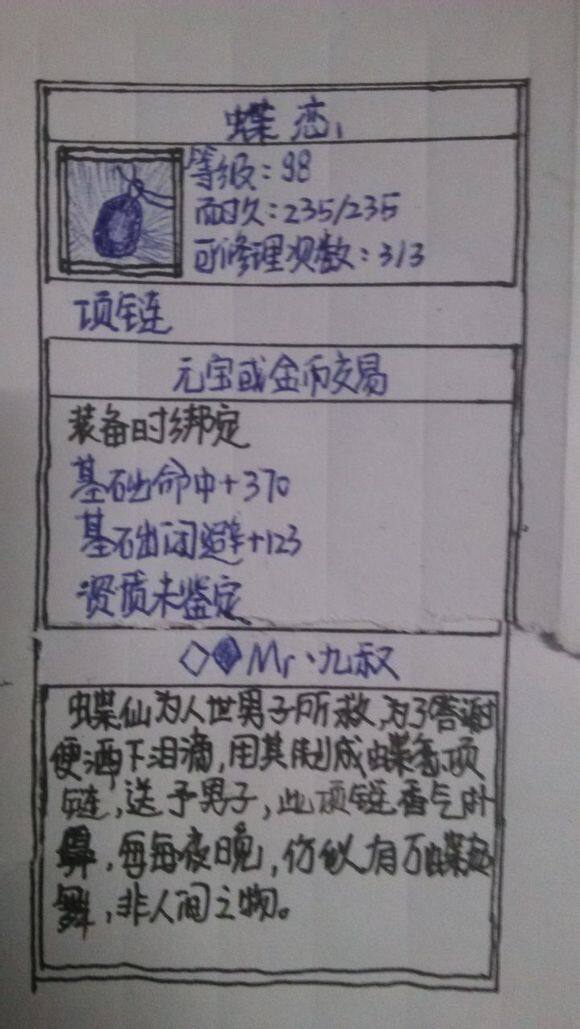 蝶恋
等级：98
耐久：235/235
可修理次数：3/3
项链
元宝或金币交易
装备时绑定
基础命中+370
基础闪避+123
资质未鉴定
◇◆Mr·九叔
蝶仙为人世男子所救，为了答谢
便洒下泪滴，用其制成蝶恋项
链，送予男子，此项链香气扑
鼻，每每夜晚，仿似有万蝶起
舞，非人间之物。